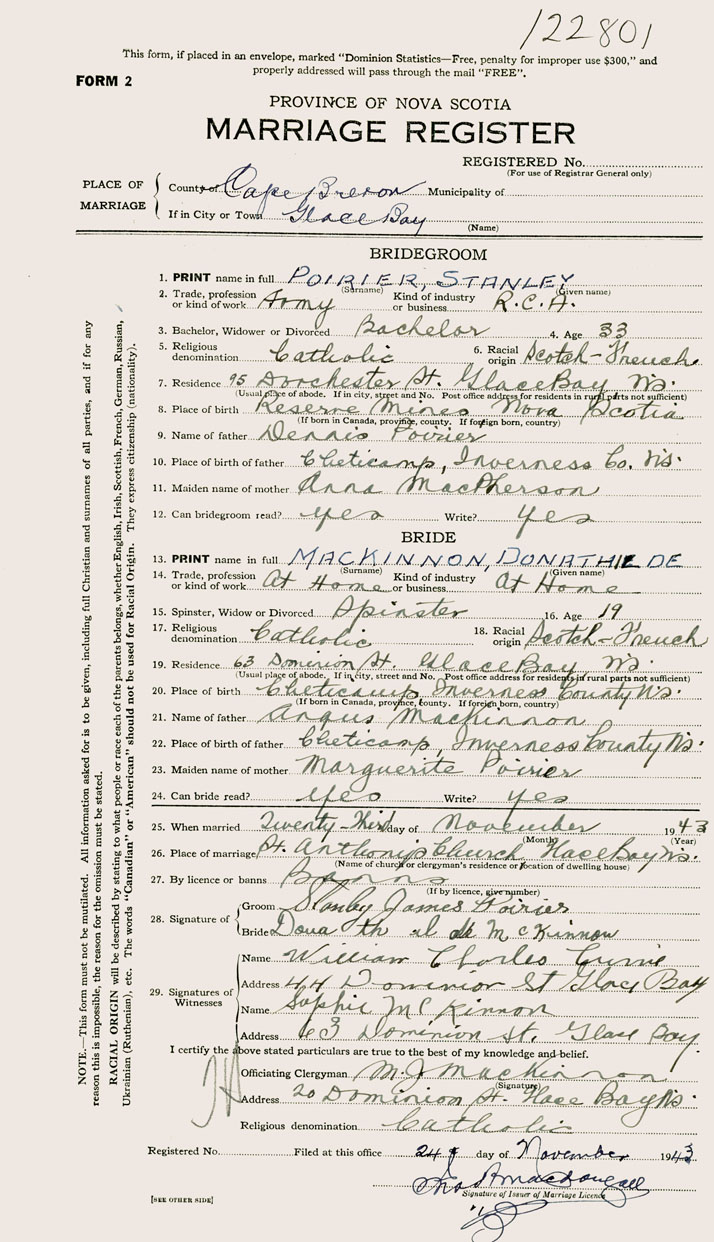 122801
This form, if placed in an envelope, marked "Dominion Statistics—Free, penalty for improper use $300," and
properly addressed will pass through the mail "FREE".
FORM 2
PROVINCE OF NOVA SCOTIA
MARRIAGE REGISTER
REGISTERED No.
(For use of Registrar General only)
PLACE OF MARRIAGE
County of Cape Breton Municipality of
If in City or Town Glace Bay
(Name)
BRIDEGROOM
1. PRINT name in full POIRIER, STANLEY
(Surname) (Given name)
2. Trade, profession or kind of work Army Kind of industry or business R.C.A.
3. Bachelor, Widower or Divorced Bachelor 4. Age 33
5. Religious denomination Catholic 6. Racial origin Scotch-French
7. Residence 95 Dorchester St. Glace Bay N.S.
(Usual place of abode. If in city, street and No. Post office address for residents in rural parts not sufficient)
8. Place of birth Reserve Mines Nova Scotia
(If born in Canada, province, county. If foreign born, country)
9. Name of father Dennis Poirier
10. Place of birth of father Cheticamp, Inverness Co. N.S.
11. Maiden name of mother Anna MacPherson
12. Can bridegroom read? yes Write? yes
BRIDE
13. PRINT name in full MACKINNON, DONATHILDE
(Surname) (Given name)
14. Trade, profession or kind of work At Home Kind of industry or business At Home
15. Spinster, Widow or Divorced Spinster 16. Age 19
17. Religious denomination Catholic 18. Racial origin Scotch-French
19. Residence 63 Dominion St. Glace Bay N.S.
(Usual place of abode. If in city, street and No. Post office address for residents in rural parts not sufficient)
20. Place of birth Cheticamp, Inverness County N.S.
(If born in Canada, province, county. If foreign born, country)
21. Name of father Angus Mackinnon
22. Place of birth of father Cheticamp, Inverness County N.S.
23. Maiden name of mother Marguerite Poirier
24. Can bride read? yes Write? yes
25. When married Twenty-third day of November 1943
(Month) (Year)
26. Place of marriage St. Anthony's Church Glace Bay N.S.
(Name of church or clergyman's residence or location of dwelling house)
27. By licence or banns Banns
(If by licence, give number)
28. Signature of
Groom Stanley James Poirier
Bride Donathilde McKinnon
29. Signatures of Witnesses
Name William Charles
Address 44 Dominion St Glace Bay
Name Sophie McKinnon
Address 63 Dominion St. Glace Bay
I certify the above stated particulars are true to the best of my knowledge and belief.
Officiating Clergyman M. J. MacKinnon
(Signature)
Address 20 Dominion St. Glace Bay N.S.
Religious denomination Catholic
Registered No. Filed at this office 24 day of November 1943
MacDougall
Signature of Issuer of Marriage Licence
[SEE OTHER SIDE]
NOTE.—This form must not be mutilated. All information asked for is to be given, including full Christian and surnames of all parties, and if for any
reason this is impossible, the reason for the omission must be stated.
RACIAL ORIGIN will be described by stating to what people or race each of the parents belongs, whether English, Irish, Scottish, French, German, Russian,
Ukrainian (Ruthenian), etc. The words "Canadian" or "American" should not be used for Racial Origin. They express citizenship (nationality).